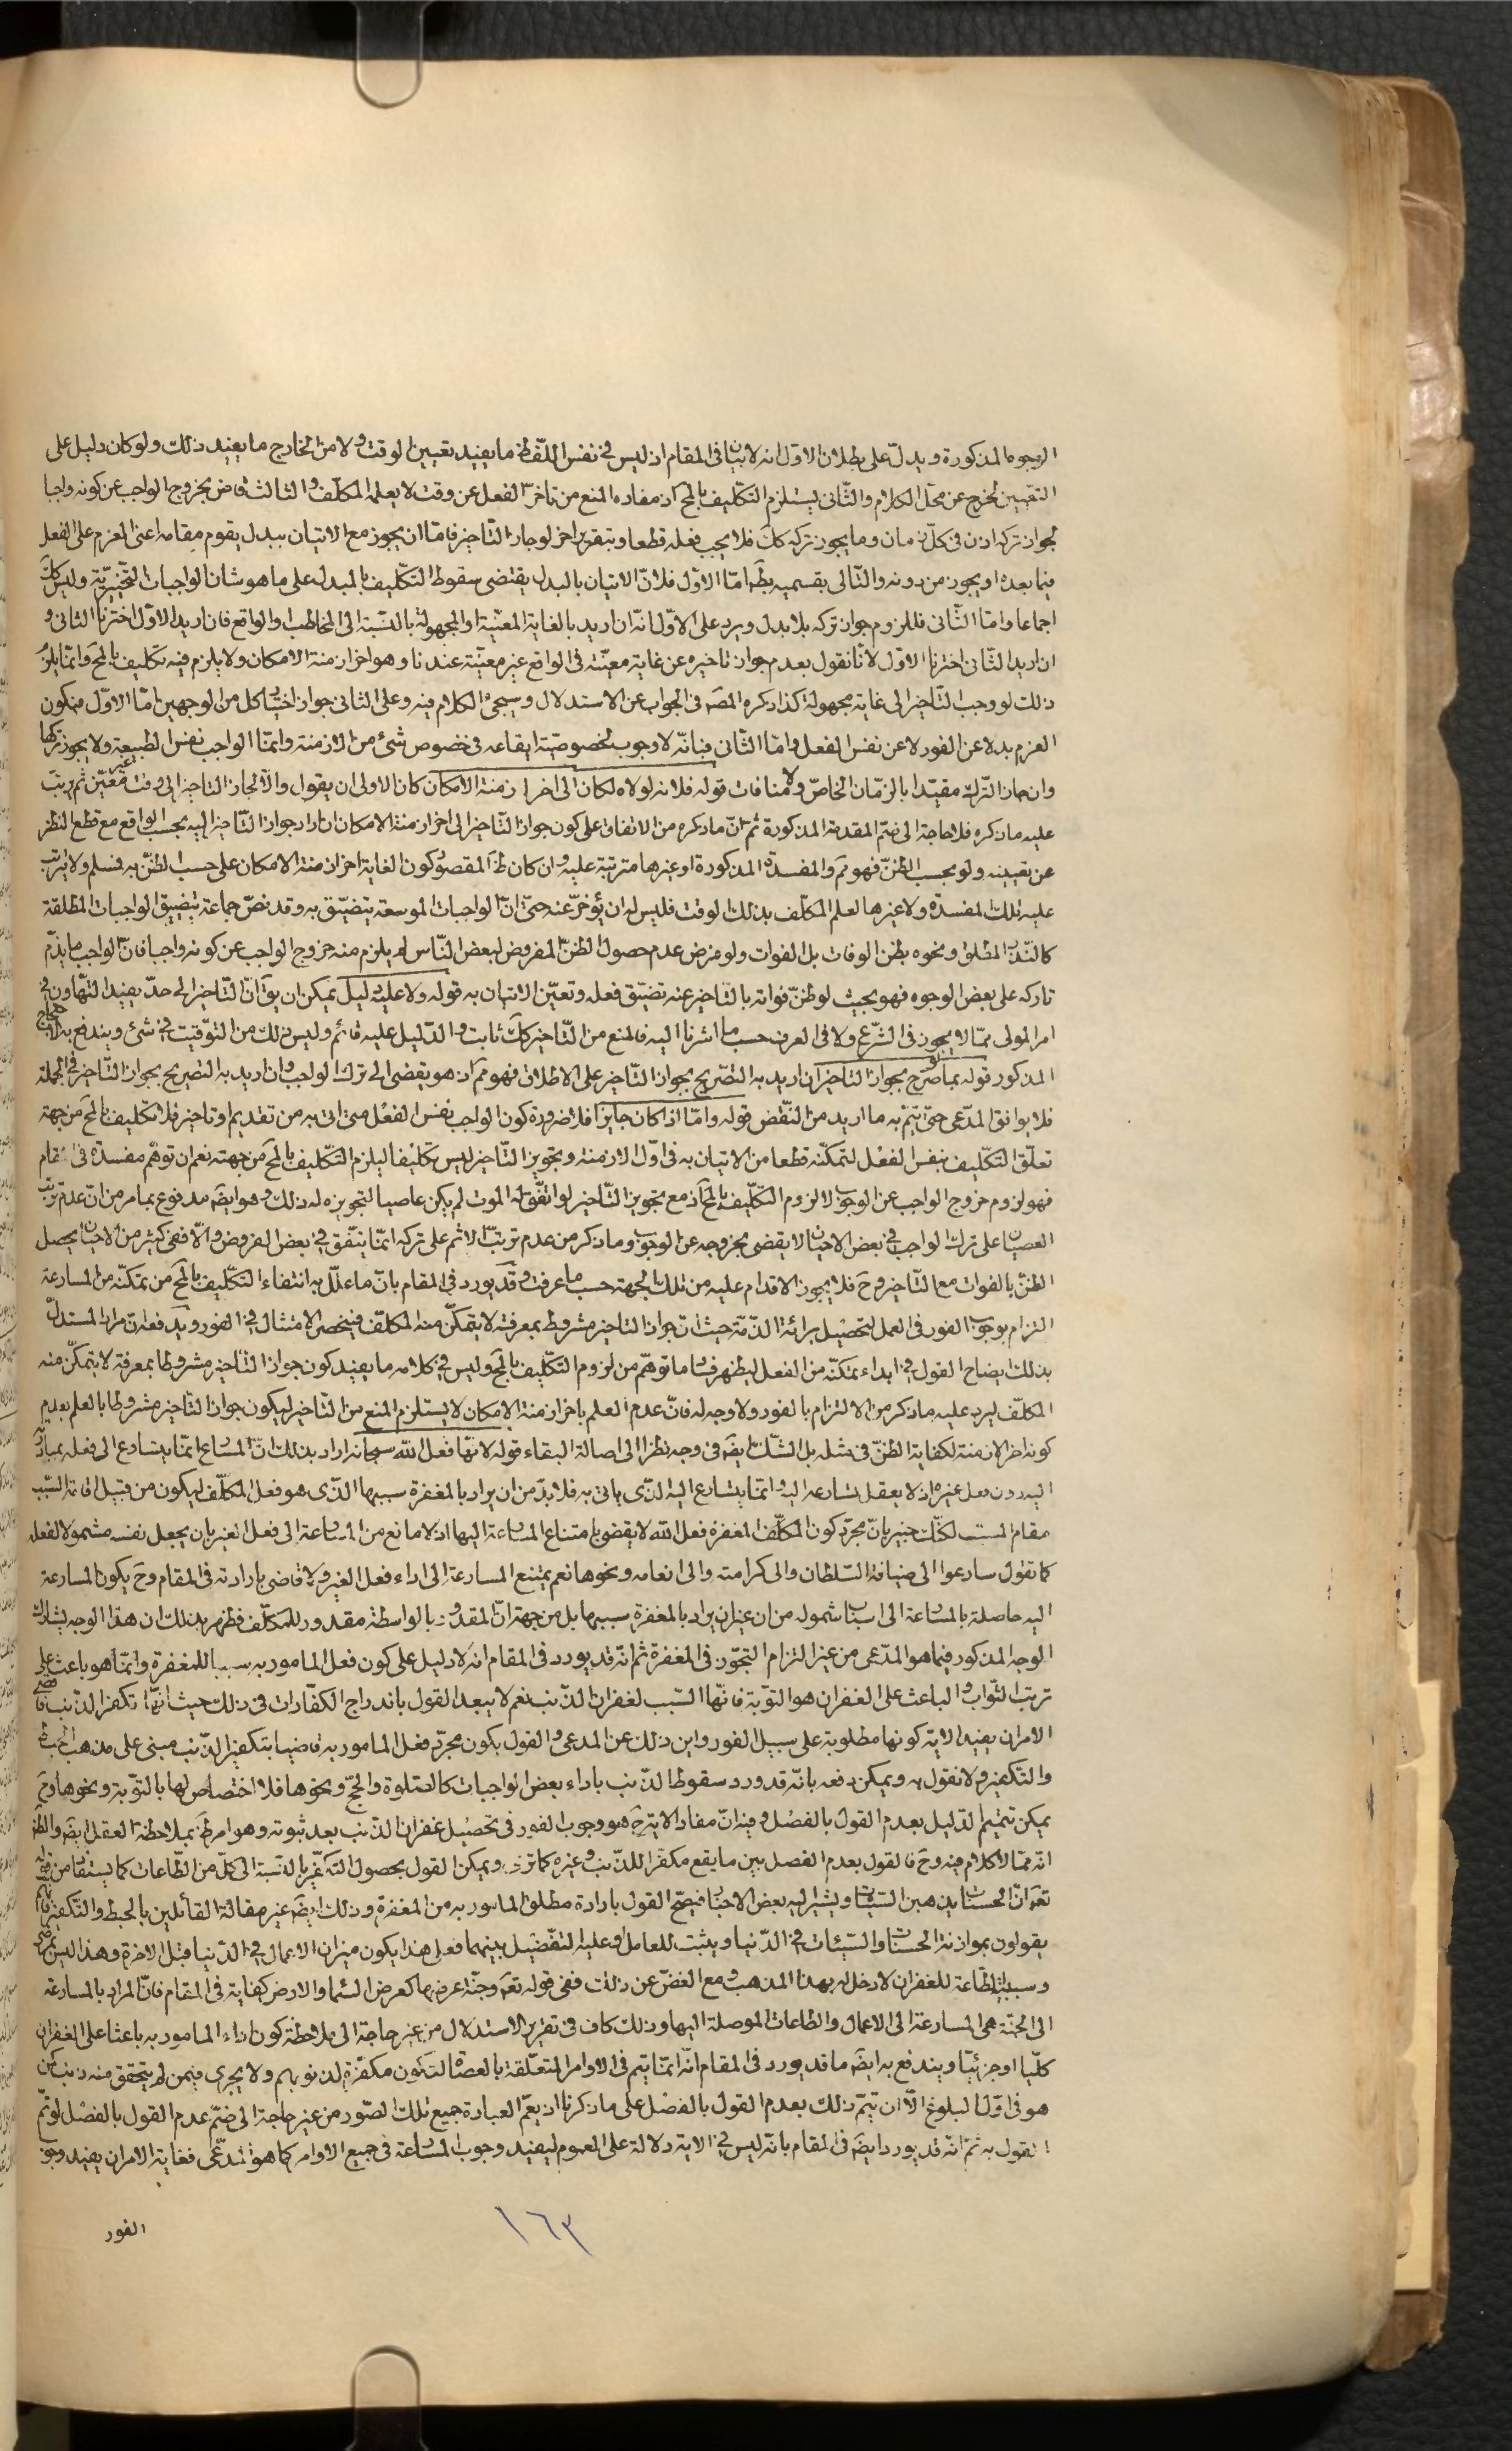 الوجوه المذكورة ويدلّ على بطلان الاوّل انه لا بيان فى المقام اذ ليس فى نفس اللّفظ ما يفيد تعيين الوقت ولا من الخارج ما يفيد ذلك ولو كان دليل على
التعيين لخرج عن محلّ الكلام والثّانى يستلزم التكليف بالمح اذ مفاده المنع من تاخر الفعل عن وقت لا يعلمه المكلّف والثالث قاض بخروج الواجب عن كونه واجبا
لجواز تركه اذن فى كلّ زمان وما يجوز تركه كك فلا يجب فعله قطعا وبتقرير اخر لو جاز التّاخير فامّا ان يجوز مع الاتيان ببدل يقوم مقامه اعنى العزم على الفعل
فيما بعده او يجوز من دونه والتّالى بقسميه بط امّا الاوّل فلانّ الاتيان بالبدل يقتضى سقوط التكليف بالمبدل على ما هو شان الواجبات التّخييريّة وليس كك
اجماعا وامّا الثّانى فللزوم جواز تركه بلا بدل ويرد على الاوّل انّه ان اريد بالغاية المعيّنة او المجهولة بالنّسبة الى المخاطب او الواقع فان اريد الاوّل اخترنا الثانى و
ان اريد الثّانى اخترنا الاوّل لانّا نقول بعدم جواز تاخيره عن غاية معيّنة فى الواقع غير معيّنة عندنا وهو اخر ازمنة الامكان ولا يلزم فيه تكليف بالمح وانّما يلزم
ذلك لو وجب التّاخير الى غاية مجهولة كذا ذكره المص فى الجواب عن الاستدلال وسيجئ الكلام فيه وعلى الثانى جواز اختيار كل من الوجهين امّا الاوّل فبكون
العزم بدلا عن الفور لا عن نفس الفعل وامّا الثّانى فبانّه لا وجوب لخصوصيّة ايقاعه فى خصوص شئ من الازمنة وانّما الواجب نفس الطبيعة ولا يجوز تركها
وان جاز التّرك مقيّدا بالزّمان الخاصّ ولا منافات قوله فلانه لولاه لكان الى اخر ازمنة الامكان كان الاولى ان يقول والّا لجاز التاخير الى وقت غير معيّن ثم يرتّب
عليه ما ذكره فلا حاجة الى ضمّ المقدمة المذكورة ثم انّ ما ذكره من الاتفاق على كون جواز التّاخير الى اخر ازمنة الامكان ان اراد جواز التّاخير اليه بحسب الواقع مع قطع النظر
عن تعيينه ولو بحسب الظنّ فهو مم والمفسدة المذكورة او غيرها مترتبة عليه وان كان ظ المقصود كون الغاية اخر ازمنة الامكان على حسب الظنّ به فمسلم ولا يترتّب
عليه تلك المفسدة ولا غيرها لعلم المكلّف بذلك الوقت فليس له ان يؤخّر عنه حتّى انّ الواجبات الموسعة يتضيّق به وقد نصّ جماعة بتضيق الواجبات المطلقة
كالنّذر المطلق ونحوه بظن الوفات بل الفوات ولو فرض عدم حصول الظنّ المفروض لبعض النّاس لم يلزم منه خروج الواجب عن كونه واجبا فانّ الواجب ما يذمّ
تاركه على بعض الوجوه فهو بحيث لو ظنّ فواته بالتّاخير عنه تضيّق فعله وتعيّن الاتيان به قوله ولا عليه دليل يمكن ان يق انّ التّاخير الى حدّ يفيد التّهاون فى
امر المولى ممّا لا يجوز فى الشّرع ولا فى العرف حسب ما اشرنا اليه فالمنع من التّاخير كك ثابت والدّليل عليه قائم وليس ذلك من التّوقيت فى شئ ويندفع به الاحتجاج
المذكور قوله بما لو صرّح بجواز التاخير ان اريد به التّصريح بجواز التّاخير على الاطلاق فهو مم اذ هو يقضى الى ترك الواجب وان اريد به التصريح بجواز التّاخير فى الجملة
فلا يوافق المدّعى حتّى يتمّ به ما اريد من النّقض قوله وامّا اذا كان جايزا فلا ضرورة كون الواجب نفس الفعل متى اتى به من تقديم او تاخير فلا تكليف بالمح من جهة
تعلّق التّكليف بنفس الفعل لتمكنه قطعا من الاتيان به فى اوّل الازمنة وتجويز التّاخير ليس تكليفا ليلزم التّكليف بالمح من جهته نعم ان توهّم مفسدة فى المقام
فهو لزوم خروج الواجب عن الوجوب لا لزوم التّكليف بالمح اذ مع تجويز التّاخير لو اتّفق له الموت لم يكن عاصيا لتجويزه له ذلك وهو ايض مدفوع بما مر من انّ عدم ترتّب
العصيان على ترك الواجب فى بعض الاحيان لا يقضى بخروجه عن الوجوب وما ذكر من عدم ترتّب الاثم على تركه انّما يتّفق فى بعض الفروض والّا ففى كثير من الاحيان يحصل
الظنّ بالفوات مع التّاخير وح فلا يجوز الاقدام عليه من تلك الجهة حسب ما عرفت وقد يورد فى المقام بانّ ما علّل به انتفاء التّكليف بالمح من تمكّنه من المسارعة
التزام بوجوب الفور فى العمل لتحصيل برائة الذّمّة حيث انّ جواز التاخير مشروط بمعرفة لا يتمكّن منه المكلّف فينحصر الامتثال فى الفور ويدفعه انّ مراد المستدلّ
بذلك ايضاح القول فى ابداء تمكّنه من الفعل ليظهر فساد ما توهّم من لزوم التّكليف بالمح وليس فى كلامه ما يفيد كون جواز التّاخير مشروطا بمعرفة لا يتمكّن منه
المكلّف ليرد عليه ما ذكر من الالتزام بالفور ولا وجه له فانّ عدم العلم باخر ازمنة الامكان لا يستلزم المنع من التّاخير ليكون جواز التّاخير مشروطا بالعلم بعدم
كونه اخر الازمنة لكفاية الظنّ فى مثله بل الشّك ايض فى وجه نظرا الى اصالة البقاء قوله لانّها فعل الله سبحانه اراد بذلك انّ المسارع انّما يتسارع الى فعله بمبادرته
اليه دون فعل غيره اذ لا يعقل تسارعه اليه وانّما يتسارع اليه الذى ياتى به فلا بدّ من ان يراد بالمغفرة سببها الّذى هو فعل المكلّف ليكون من قبيل اقامة السّبب
مقام المسبب لكنّك خبير بانّ مجرّد كون المغفرة فعل الله لا يقضى بامتناع المسارعة اليها اذ لا مانع من المسارعة الى فعل الغير بان يجعل نفسه مشمولا لفعله
كما تقول سارعوا الى ضيافة السّلطان والى كرامته والى انعامه ونحوها نعم يمتنع المسارعة الى اداء فعل الغير ولا قاضى بارادته فى المقام وح يكون المسارعة
اليه حاصلة بالمسارعة الى اسباب شموله من غير ان يراد بالمغفرة سببها بل من جهة انّ المقدور بالواسطة مقدور للمكلّف فظهر بذلك ان هذا الوجه يشارك
الوجه المذكور فيما هو المدّعى من غير التزام التجوّز فى المغفرة ثم انّه قد يورد فى المقام انّه لا دليل على كون فعل المامور به سببا للمغفرة وانّما هو باعث على
ترتب الثّواب والباعث على الغفران هو التّوبة فانّها السّبب لغفران الذّنب نعم لا يبعد القول باندراج الكفّارات فى ذلك حيث انّها تكفر الذّنب فاقصى
الامر ان يفيد الاية كونها مطلوبة على سبيل الفور واين ذلك عن المدعى والقول بكون مجرّد فعل المامور به قاضيا بتكفير الذّنب مبنى على مذهب الحبط
والتّكفير ولا نقول به ويمكن دفعه بانّه قد ورد سقوط الذّنب باداء بعض الواجبات كالصّلوة والحجّ ونحوها فلا اختصاص لها بالتّوبة ونحوها وح
يمكن تتميم الدّليل بعدم القول بالفصل وفيه انّ مفاد الاية ح هو وجوب الفور فى تحصيل غفران الذّنب بعد ثبوته وهو امر ظ بملاحظة العقل ايض والظ
انّه ممّا لا كلام فيه وح فالقول بعدم الفصل بين ما يقع مكفّرا للذّنب وغيره كما ترى ويمكن القول بحصول التّكفير بالنّسبة الى كلّ من الطّاعات كما يستفاد من قوله
تعه انّ الحسنات يذهبن السّيّئات ويشير اليه بعض الاخبار فيصحّ القول بارادة مطلق المامور به من المغفرة وذلك ايض غير مقالة القائلين بالحبط والتّكفير فانّهم
يقولون بموازنة الحسنات والسّيّئات فى الدّنيا ويثبت للعامل او عليه التّفضيل بينهما فعلى هذا يكون ميزان الاعمال فى الدّنيا قبل الاخرة وهذا ليس بمرضى
وسببيّة الطّاعة للغفران لا دخل له بهذا المذهب ومع الغضّ عن ذلك ففى قوله تعه وجنّة عرضها كعرض السّماء والارض كفاية فى المقام فانّ المراد بالمسارعة
الى الجنّة هى المسارعة الى الاعمال والطاعات الموصلة اليها وذلك كاف فى تقرير الاستدلال من غير حاجة الى ملاحظة كون اداء المامور به باعثا على الغفران
كلّيا او جزئيّا ويندفع به ايض ما قد يورد فى المقام انّه انّما يتم فى الاوامر المتعلّقة بالعصاة لتكون مكفّرة لذنوبهم ولا يجرى فيمن لم يتحقق منه ذنب كمن
هو فى اوّل البلوغ الّا ان تتمّ ذلك بعدم القول بالفصل على ما ذكرنا اذ يعمّ العبارة جميع تلك الصّور من غير حاجة الى ضمّ عدم القول بالفصل لو تمّ
القول به ثمّ انّه قد يورد ايض فى المقام بانّه ليس فى الاية دلالة على العموم ليفيد وجوب المسارعة فى جميع الاوامر كما هو المدّعى فغاية الامر ان يفيد وجوب
الفور
١٦٣